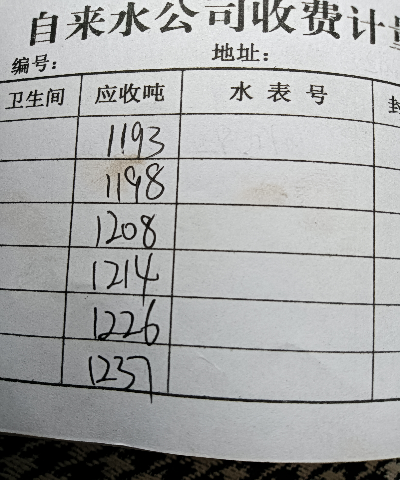 自来水公司收费计量
编号： 地址：
卫生间 应收吨 水表号 封
1193
1198
1208
1214
1226
1237